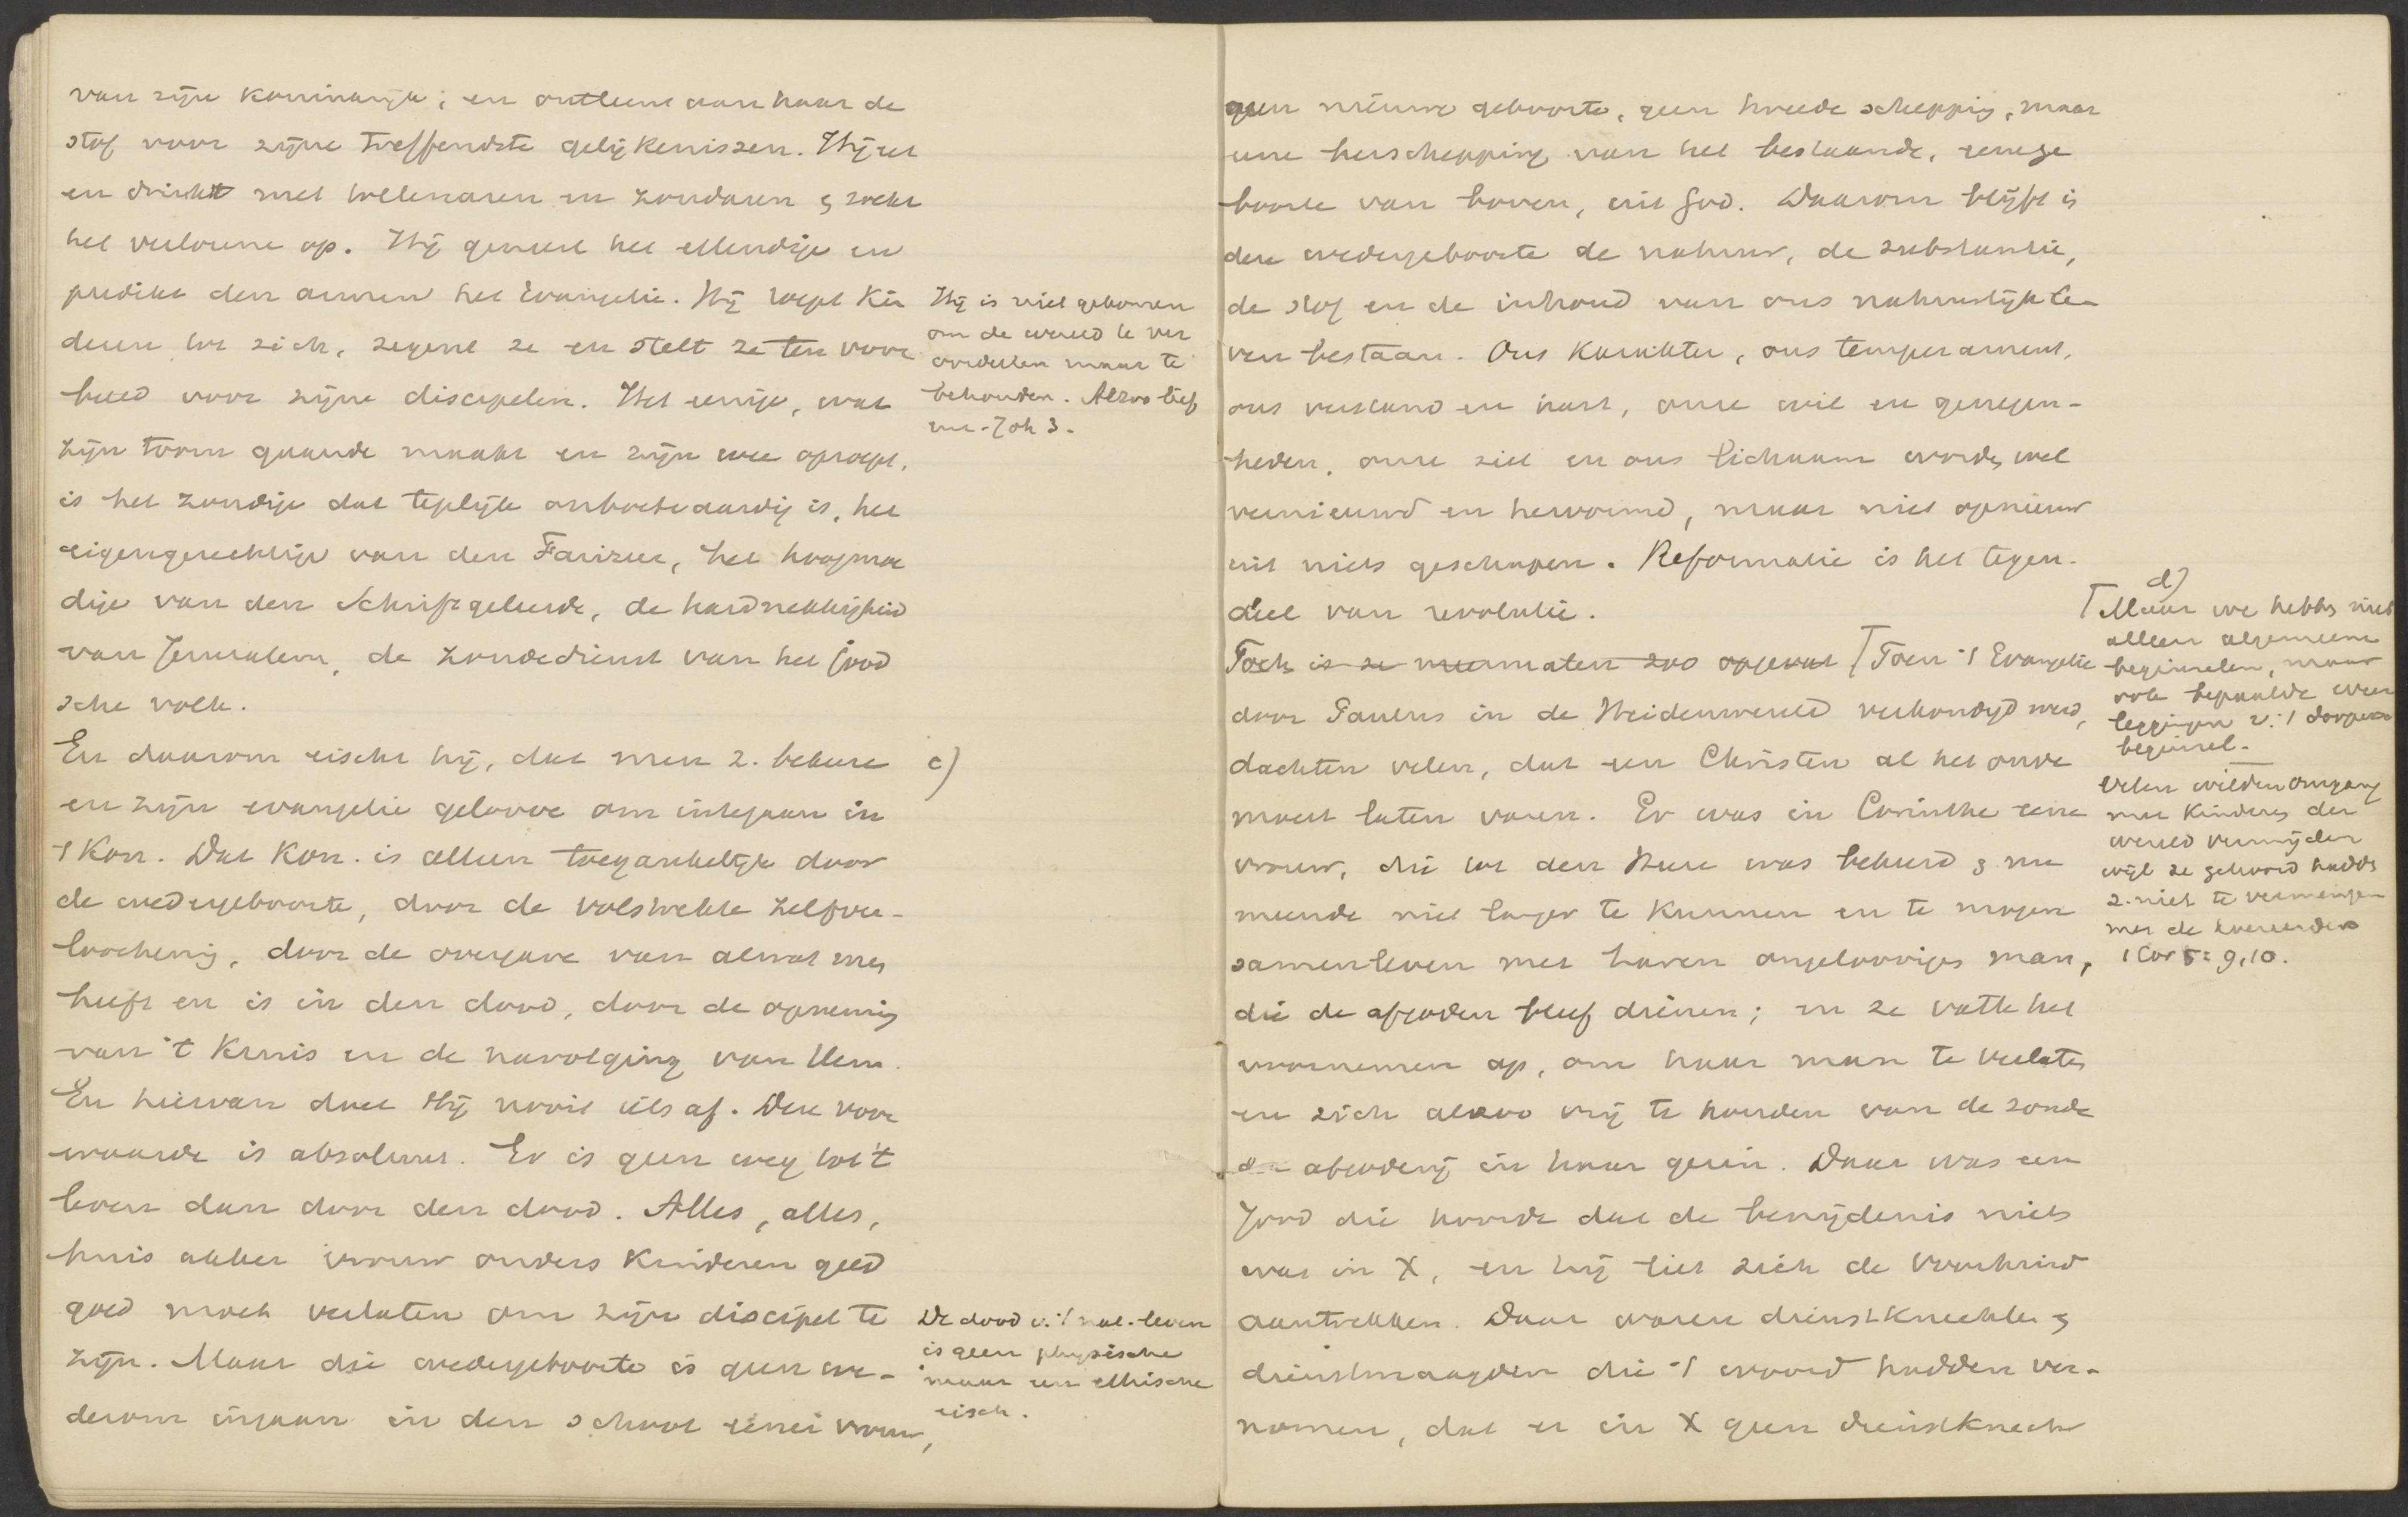 van zijn koninkrijk; en ontleent aan haar de
stof voor zijne treffendste gelijkenissen. Hij eet
en drinkt met tollenaren en zondaren & zoekt
het verlorene op. Hij geneest het ellendige en
predikt den armen het Evangelie. Hij roept kin
deren tot zich, zegent ze en stelt ze ten voor
beeld voor zijne discipelen. Het eenige, wat
zijn toorn gaande maakt en zijn wee oproept,
is het zondige dat tegelijk onboetvaardig is, het
eigengerechtige van den Farizeer, het hoogmoe
dige van den Schriftgeleerde, de hardnekkigheid
van Jerusalem, de zondedienst van het jood
sche volk.
Hij is niet gekomen
om de wereld te ver
oordeelen maar te
behouden. Alzoo lief
enz. Joh 3.
En daarom eischt hij, dat men z. bekeere
en zijn evangelie geloove om integaan in
't Kon. Dat Kon. is alleen toegankelijk door
de wedergeboorte, door de volstrekte zelfver-
loochening, door de overgave van alwat men
heeft en is in den dood, door de opneming
van 't kruis en de navolging van Hem.
En hiervan doet Hij nooit iets af. Deze voor
waarde is absoluut. Er is geen weg tot 't
leven dan door den dood. Alles, alles,
huis akker vrouw ouders kinderen geld
goed moet verlaten om zijn discipel te
zijn. Maar die wedergeboorte is geen we-
derom ingaan in den schoot eener vrouw,
c)
De dood v. 't nat. leven
is geen physische
maar een ethische
eisch.
geen nieuwe geboorte, geen tweede schepping, maar
eene herschepping van het bestaande, eene ge
boorte van boven, uit God. Daarom blijft in
deze wedergeboorte de natuur, de substantie,
de stof en de inhoud van ons natuurlijk le-
ven bestaan. Ons karakter, ons temperament,
ons verstand en hart, onze wil en genegen-
heden, onze ziel en ons lichaam worden wel
vernieuwd en hervormd, maar niet opnieuw
uit niets geschapen. Reformatie is het tegen-
deel van revolutie.
Toch is ze meermalen zoo opgevat Toen 't Evangelie
door Paulus in de Heidenwereld verkondigd werd,
dachten velen, dat een Christen al het oude
moest laten varen. Er was in Corinthe eene
vrouw, die tot den Heere was bekeerd & nu
meende niet langer te kunnen en te mogen
samenleven met haren ongeloovigen man,
die de afgoden bleef dienen; en ze vatte het
voornemen op, om haar man te verlaten
en zich alzoo vrij te houden van de zonde
der afgoderij in haar gezin. Daar was een
Jood die hoorde dat de besnijdenis niets
was in X, en hij liet zich de voorhuid
aantrekken. Daar waren dienstknechten &
dienstmaagden die 't woord hadden ver-
nomen, dat er in X geen dienstknecht
d)
Maar we hebben niet
alleen algemeene
beginselen, maar
ook bepaalde
v. 't
beginsel.
Velen wilden omgang
met kinderen der
wereld vermijden
wijl ze gehoord hadden
z. niet te vermengen
met de hoereerders
1 Cor 5: 9, 10.